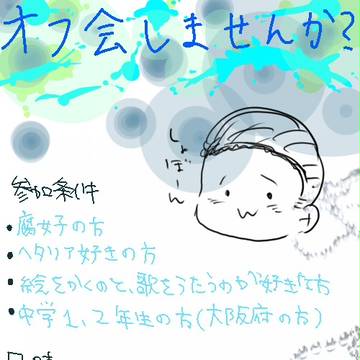 オフ会しませんか?
しょぼーん
参加条件
・腐女子の方
・ヘタリア好きの方
・絵をかくのと、歌をうたうのが好きな方
・中学1、2年生の方(大阪府の方)